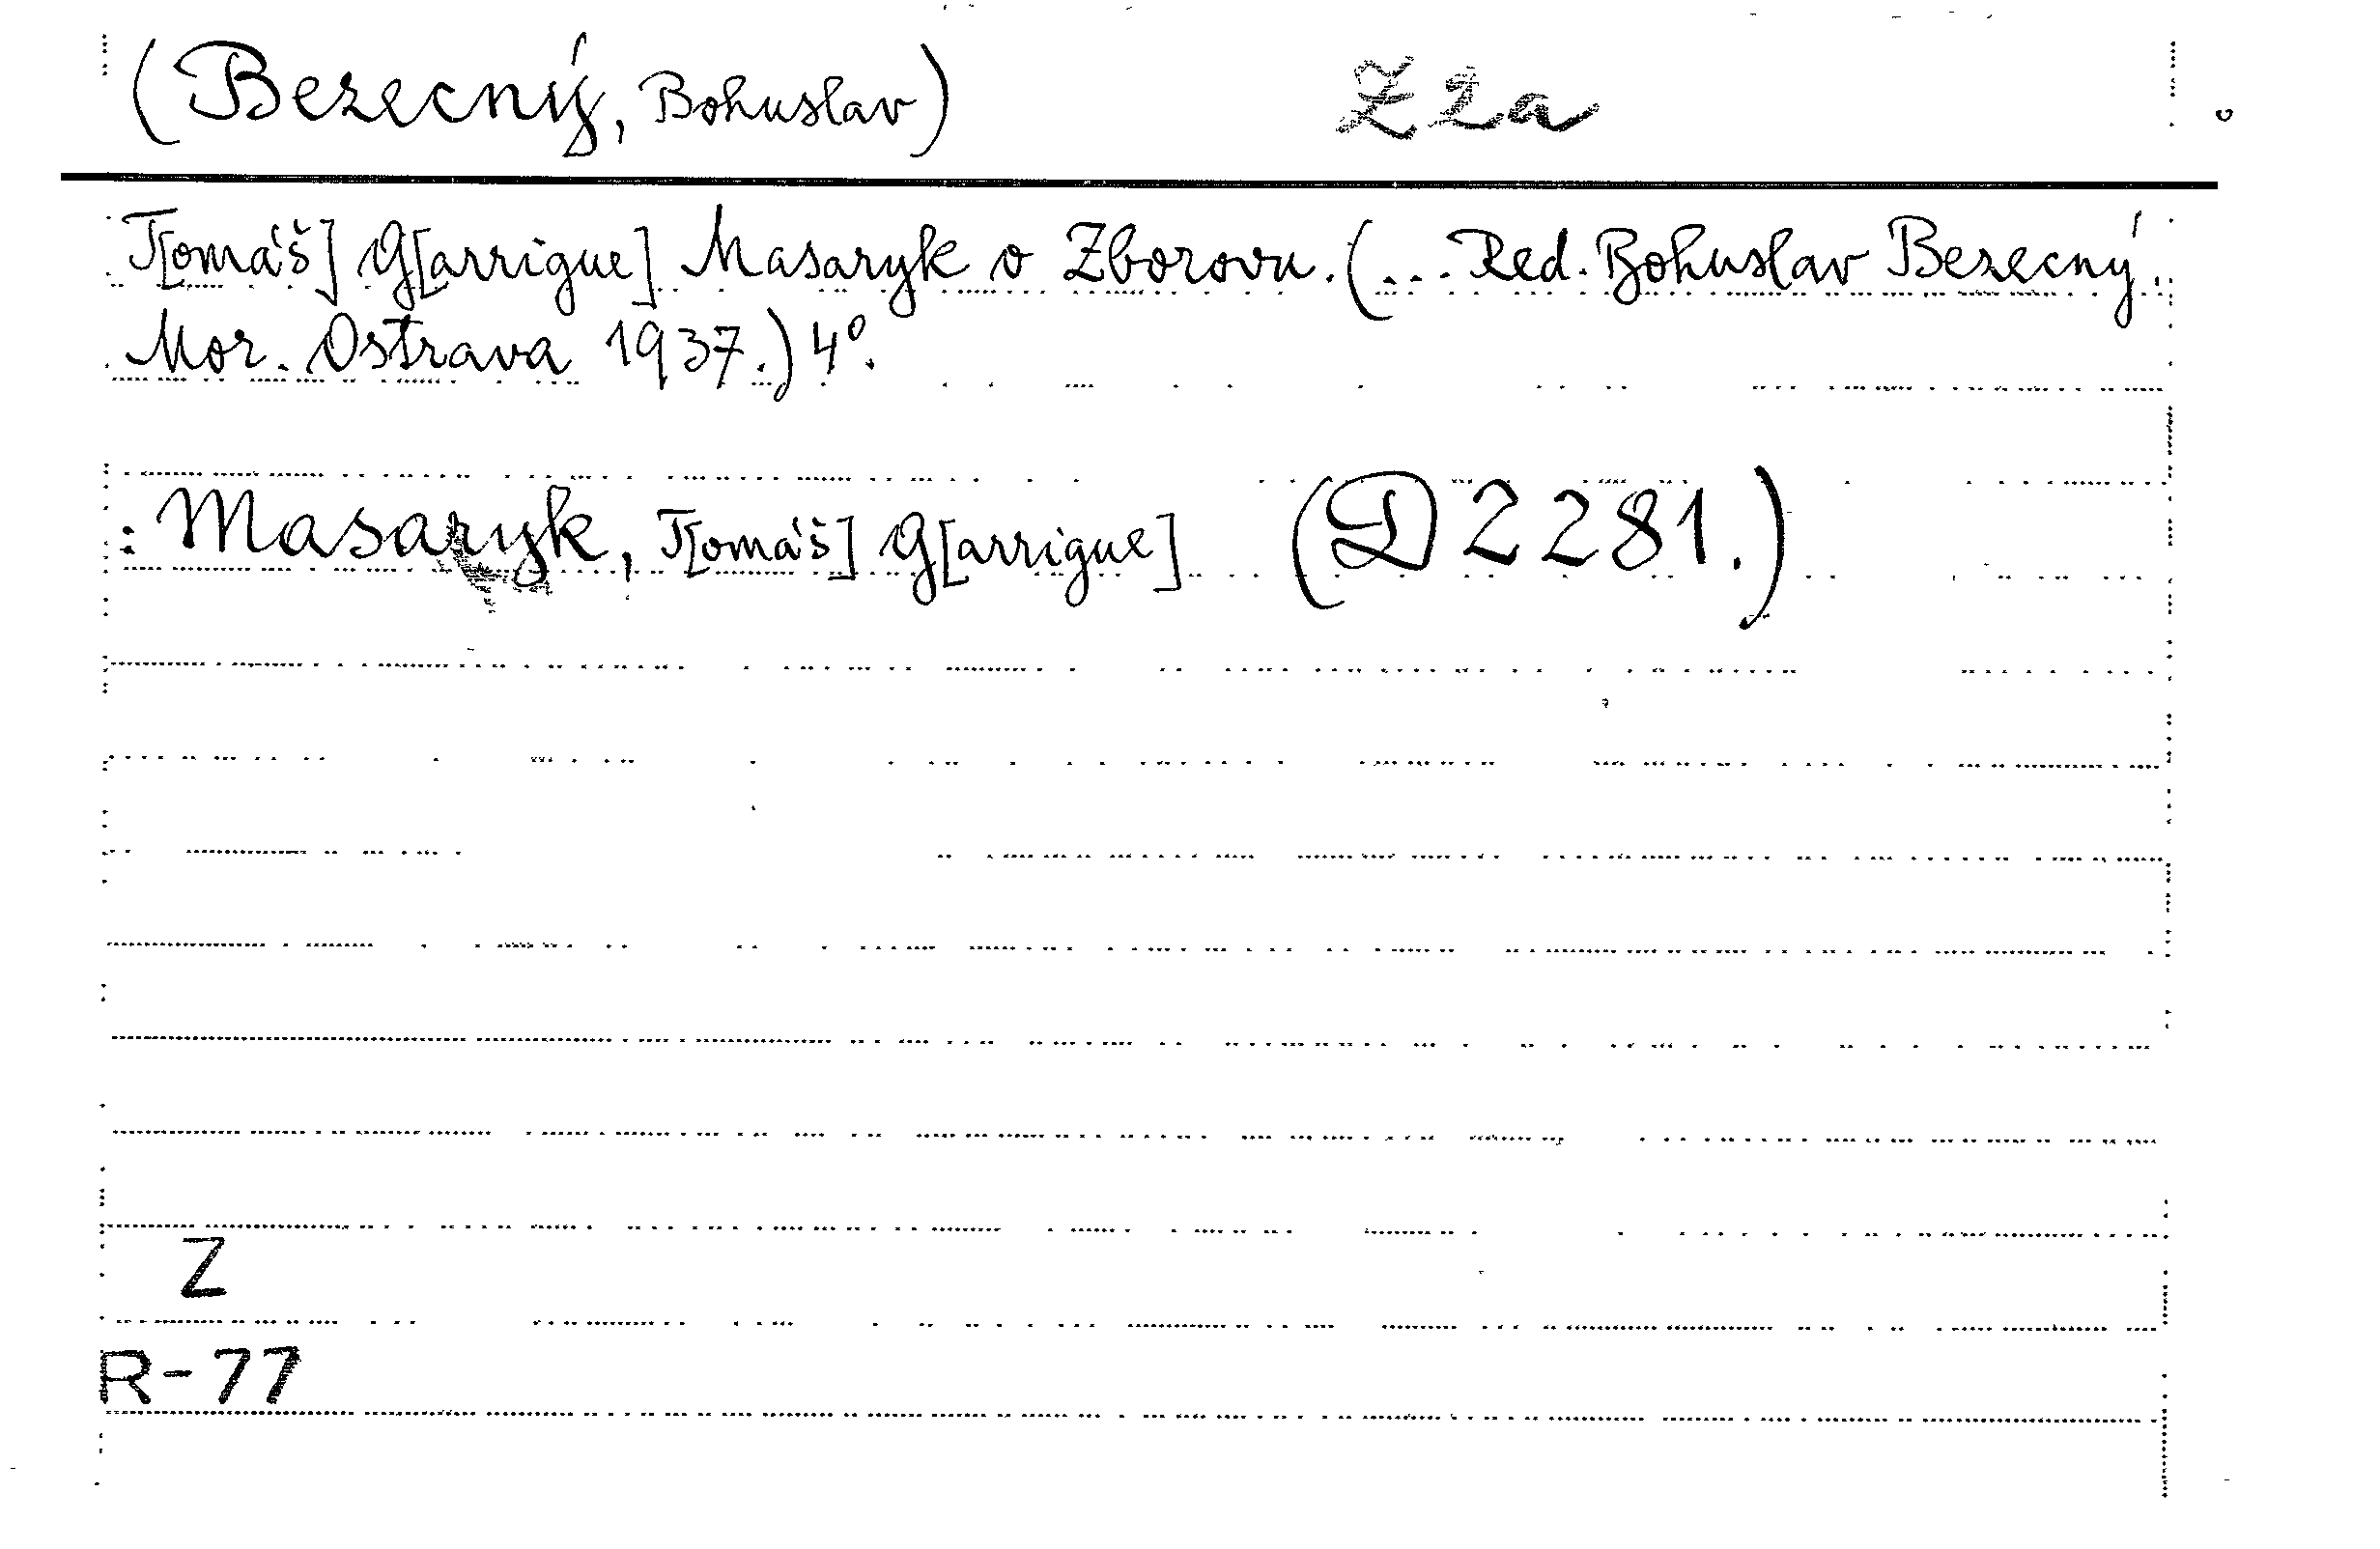 (Bezecný, Bohuslav) Z2a
T[omáš] G[arrigue] Masaryk o Zborovu. (... Red. Bohuslav Bezecný.
Mor. Ostrava 1937.) 4°.
: Masaryk, T[omáš] G[arrigue] (D 2281.)
Z
R-77